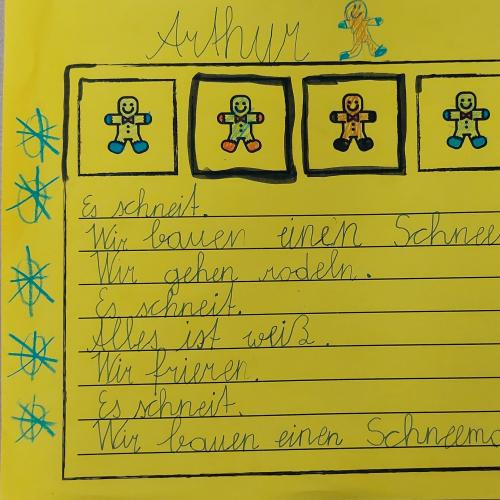 Arthur
Es schneit.
Wir bauen einen Schnee
Wir gehen rodeln.
Es schneit.
Alles ist weiß.
Wir frieren.
Es schneit.
Wir bauen einen Schneema